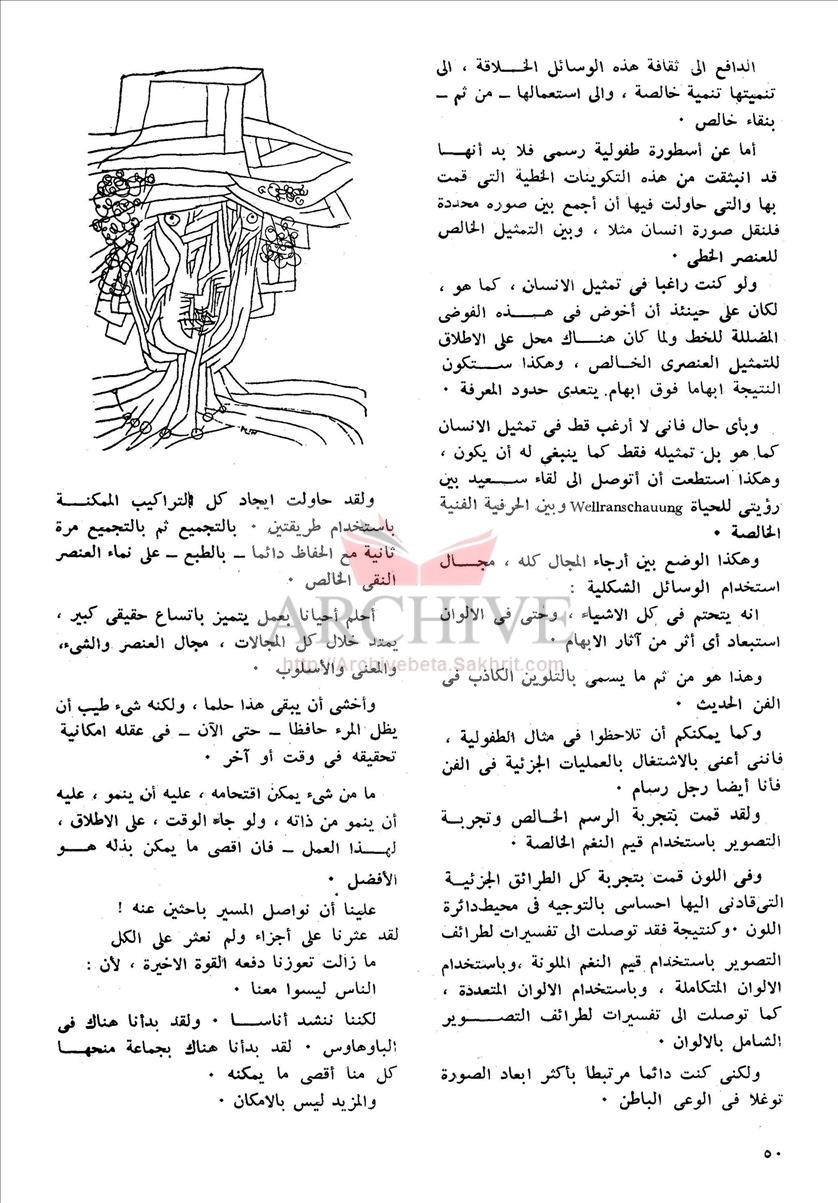 الدافع الى ثقافة هذه الوسائل الخـــلاقة ، الى
تنميتها تنمية خالصة ، والى استعمالها ــ من ثم ــ
بنقاء خالص ٠
أما عن أسطورة طفولية رسمى فلا بد أنهـــا
قد انبثقت من هذه التكوينات الخطية التى قمت
بها والتى حاولت فيها أن أجمع بين صوره محددة
فلنقل صورة انسان مثلا ، وبين التمثيل الخالص
للعنصر الخطى ٠
ولو كنت راغبا فى تمثيل الانسان ، كما هو ،
لكان على حينئذ أن أخوض فى هـــذه الفوضى
المضللة للخط ولما كان هنــاك محل على الاطلاق
للتمثيل العنصرى الخــالص ، وهكذا ستــكون
النتيجة ابهاما فوق ابهام يتعدى حدود المعرفة ٠
وبأى حال فانى لا أرغب قط فى تمثيل الانسان
كما هو بل تمثيله فقط كما ينبغى له أن يكون ،
وهكذا استطعت أن أتوصل الى لقاء ســعيد بين
رؤيتى للحياة Wellranschauung وبين الحرفية الفنية
الخالصة ٠
وهكذا الوضع بين أرجاء المجال كله ، مجــال
استخدام الوسائل الشكلية :
انه يتحتم فى كل الاشياء ، وحتى فى الالوان
استبعاد أى أثر من آثار الابهام ٠
وهذا هو من ثم ما يسمى بالتلوين الكاذب فى
الفن الحديث ٠
وكما يمكنكم أن تلاحظوا فى مثال الطفولية ،
فاننى أعنى بالاشتغال بالعمليات الجزئية فى الفن
فأنا أيضا رجل رسام ٠
ولقد قمت بتجربة الرسم الخــالص وتجربــة
التصوير باستخدام قيم النغم الخالصة ٠
وفى اللون قمت بتجربة كل الطرائق الجزئيــة
التى قادنى اليها احساسى بالتوجيه فى محيط دائرة
اللون ٠ وكنتيجة فقد توصلت الى تفسيرات لطرائف
التصوير باستخدام قيم النغم الملونة ، وباستخدام
الالوان المتكاملة ، وباستخدام الالوان المتعددة ،
كما توصلت الى تفسيرات لطرائف التصــــوير
الشامل بالالوان ٠
ولكنى كنت دائما مرتبطا بأكثر ابعاد الصورة
توغلا فى الوعى الباطن ٠
ولقد حاولت ايجاد كل التراكيب الممكنــة
باستخدام طريقتين ٠ بالتجميع ثم بالتجميع مرة
ثانية مع الحفاظ دائما ــ بالطبع ــ على نماء العنصر
النقى الخالص ٠
أحلم أحيانا بعمل يتميز باتساع حقيقى كبير ،
يمتد خلال كل المجالات ، مجال العنصر والشىء،
والمعنى والأسلوب ٠
وأخشى أن يبقى هذا حلما ، ولكنه شىء طيب أن
يظل المرء حافظا ــ حتى الآن ــ فى عقله امكانية
تحقيقه فى وقت أو آخر ٠
ما من شىء يمكن اقتحامه ، عليه أن ينمو ، عليه
أن ينمو من ذاته ، ولو جاء الوقت ، على الاطلاق ،
لهــذا العمل ــ فان اقصى ما يمكن بذله هــو
الأفضل ٠
علينا أن نواصل المسير باحثين عنه !
لقد عثرنا على أجزاء ولم نعثر على الكل
ما زالت تعوزنا دفعه القوة الاخيرة ، لأن :
الناس ليسوا معنا ٠
لكننا ننشد أناســـا ٠ ولقد بدأنا هناك فى
الباوهاوس ٠ لقد بدأنا هناك بجماعة منحهــا
كل منا أقصى ما يمكنه ٠
والمزيد ليس بالامكان ٠
ARCHIVE
http://Archivebeta.Sakhrit.com
٥٠